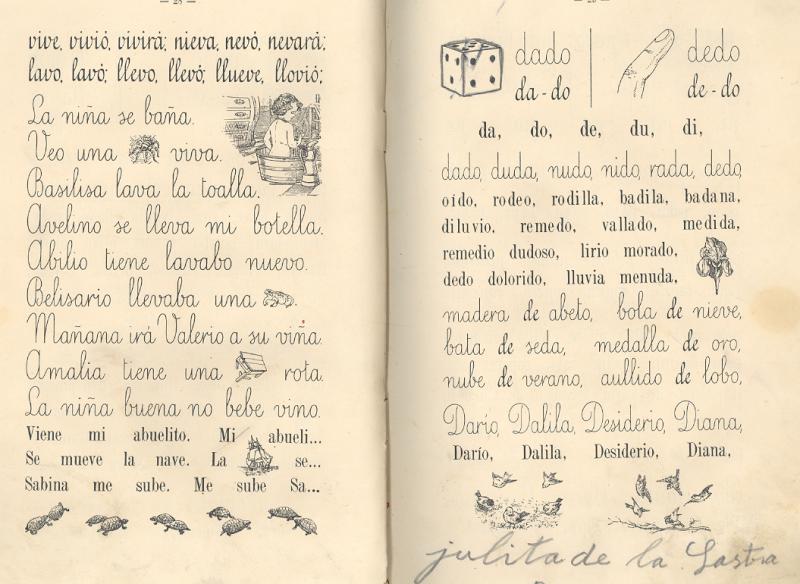 — 28 —
vive, vivió, vivirá; nieva, nevó, nevará;
lavo, lavó; llevo, llevó; llueve, llovió;
La niña se baña.
Veo una viva.
Basilisa lava la toalla.
Avelino se lleva mi botella.
Abilio tiene lavabo nuevo.
Belisario llevaba una
Mañana irá Valerio a su viña.
Amalia tiene una rota.
La niña buena no bebe vino.
Viene mi abuelito. Mi abueli...
Se mueve la nave. La se...
Sabina me sube. Me sube Sa...
dado
da - do
dedo
de - do
da, do, de, du, di,
dado, duda, nudo, nido, rada, dedo,
oído, rodeo, rodilla, badila, badana,
diluvio, remedo, vallado, medida,
remedio dudoso, lirio morado,
dedo dolorido, lluvia menuda,
madera de abeto, bola de nieve,
bata de seda, medalla de oro,
nube de verano, aullido de lobo,
Darío, Dalila, Desiderio, Diana,
Darío, Dalila, Desiderio, Diana,
julita de la Lastra